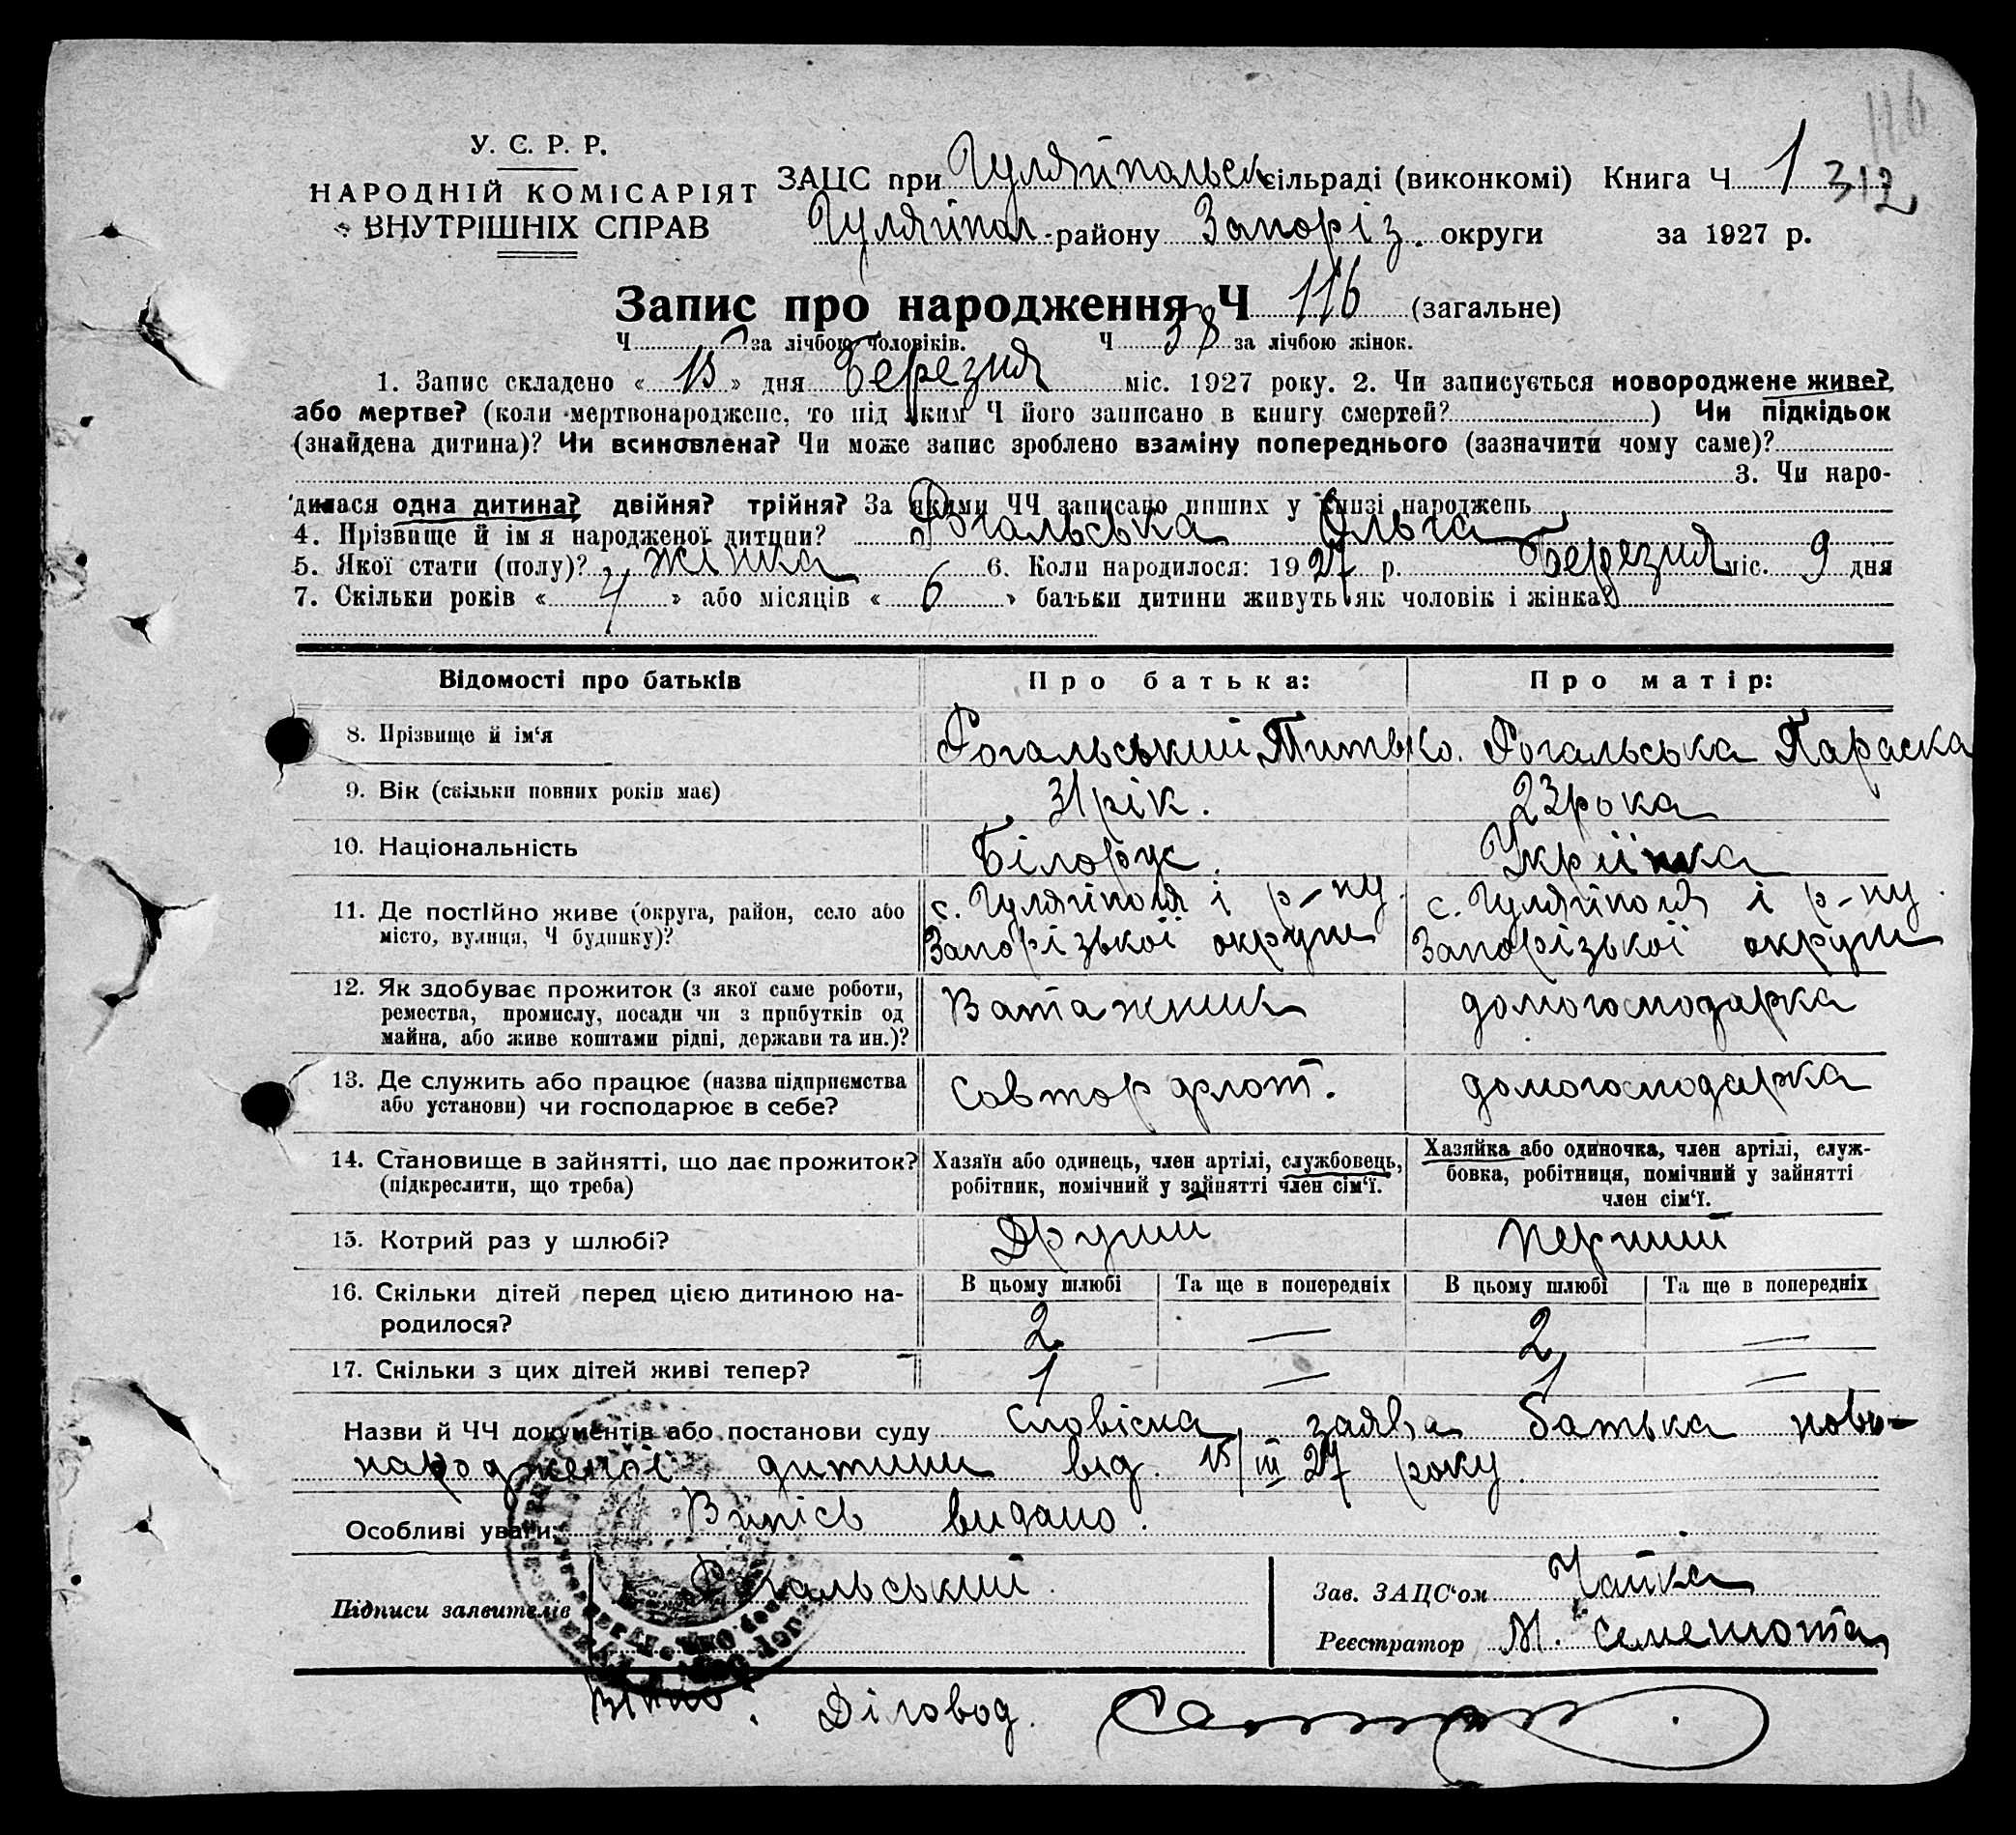 116
У. С. Р. Р.
НАРОДНІЙ КОМІСАРІЯТ
ВНУТРІШНІХ СПРАВ
ЗАЦС при Гуляйпольск сільраді (виконкомі) Книга Ч 1 312
Гуляйпол. району Запоріз. округи за 1927 р.
Запис про народження Ч 116 (загальне)
Ч за лічбою чоловіків. Ч 38 за лічбою жінок.
1. Запис складено « 15 » дня Березня міс. 1927 року. 2. Чи записується новороджене живе?
або мертве? (коли мертвонароджене, то під яким Ч його записано в книгу смертей? ) Чи підкідьок
(знайдена дитина)? Чи всиновлена? Чи може запис зроблено взаміну попереднього (зазначити чому саме)?
3. Чи наро-
дилася одна дитина? двійня? трійня? За якими ЧЧ записано инших у книзі народжень
4. Прізвище й ім я народженої дитини? Рогальська Ольга
5. Якої стати (полу)? жінка 6. Коли народилося: 1927 р. Березня міс. 9 дня
7. Скільки років « 4 » або місяців « 6 » батьки дитини живуть як чоловік і жінка?
Відомості про батьків Про батька: Про матір:
8. Прізвище й ім‘я Рогальський Титько. Рогальська Параска
9. Вік (скільки повних років має) 31 рік. 23 рока
10. Національність Білорус. Укрїінка
11. Де постійно живе (округа, район, село або
місто, вулиця, Ч будинку)?
с. Гуляйполя і р-ну.
Запорізької округи
с. Гуляйполя і р-ну.
Запорізької округи
12. Як здобуває прожиток (з якої саме роботи,
ремества, промислу, посади чи з прибутків од
майна, або живе коштами рідні, держави та ин.)?
Ватажник домогоподарка
13. Де служить або працює (назва підприємства
або установи) чи господарює в себе?
Совторгфлот. домогоподарка
14. Становище в зайнятті, що дає прожиток?
(підкреслити, що треба)
Хазяїн або одинець, член артілі, службовець,
робітник, помічний у зайнятті член сім‘ї.
Хазяйка або одиночка, член артілі, служ-
бовка, робітниця, помічний у зайнятті
член сім‘ї.
15. Котрий раз у шлюбі? Другий перший
16. Скільки дітей перед цією дитиною на-
родилося?
В цьому шлюбі Та ще в попередніх В цьому шлюбі Та ще в попередніх
2 — 2 —
17. Скільки з цих дітей живі тепер? 1 — 1 —
Назви й ЧЧ документів або постанови суду словісна заява батька ново-
народженої дитини від. 15/III 27 року.
Особливі уваги: Випісь видано.
Підписи заявителів Рогальський
Зав. ЗАЦС‘ом Чайка
Реєстратор М. Семенюта
Вірно: Діловод.